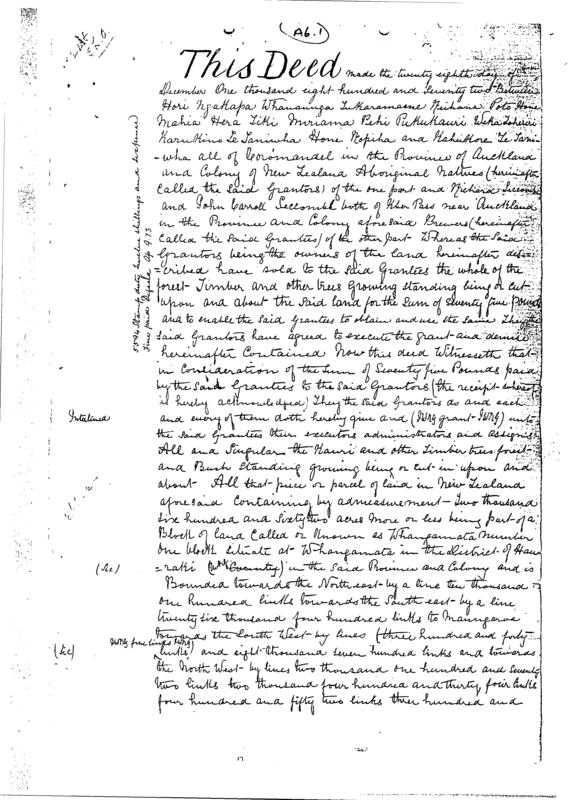 A6.1
This Deed made the twenty eighth day of
December One thousand eight hundred and Seventy two Between
Hori Ngakapa Whanaunga
Mahia Hera Tiki Miriama Pehi
Te Taniwha Hone Ropiha and Te Tani-
-wha all of Coromandel in the Province of Auckland
and Colony of New Zealand Aboriginal Natives (hereinafter
called the said Grantors) of the one part and Richard Seccombe
and John Carroll Seccombe both of Khyber Pass near Auckland
in the Province and Colony aforesaid Brewers (hereinafter
called the said Grantees) of the other part Whereas the said
Grantors being the owners of the land hereinafter des-
=cribed have sold to the said Grantees the whole of the
forest Timber and other trees growing standing being or cut
upon and about the said land for the sum of Seventy five pounds
and to enable the said Grantees to obtain and use the same They the
said Grantors have agreed to execute the grant and demise
hereinafter contained Now this deed Witnesseth that
in Consideration of the Sum of Seventy five Pounds paid
by the said Grantees to the said Grantors (the receipt whereof
is hereby acknowledged) They the said Grantors do and each
Interlined
and every of them doth hereby give and ( grant ) unto
the said Grantees their executors administrators and assigns
All and Singular the Kauri and other Timber trees forest
and Bush Standing growing being or cut in upon and
about All that piece or parcel of land in New Zealand
aforesaid Containing by admeasurement Two thousand
six hundred and sixty two acres more or less being part of a
Block of land called or known as Whangamata Number
One block situate at Whangamata in the District of Hau
(sic)
=raki ( County) in the said Province and Colony and is
Bounded towards the North east by a line ten thousand
one hundred links towards the South east by a line
twenty six thousand four hundred links to
towards the South West by lines (three hundred and forty
(sic)
five links
links) and eight thousand seven hundred links and towards
the North West by lines two thousand one hundred and seventy
two links two thousand four hundred and thirty four links
four hundred and fifty two links three hundred and
Stamp duty twelve shillings and sixpence